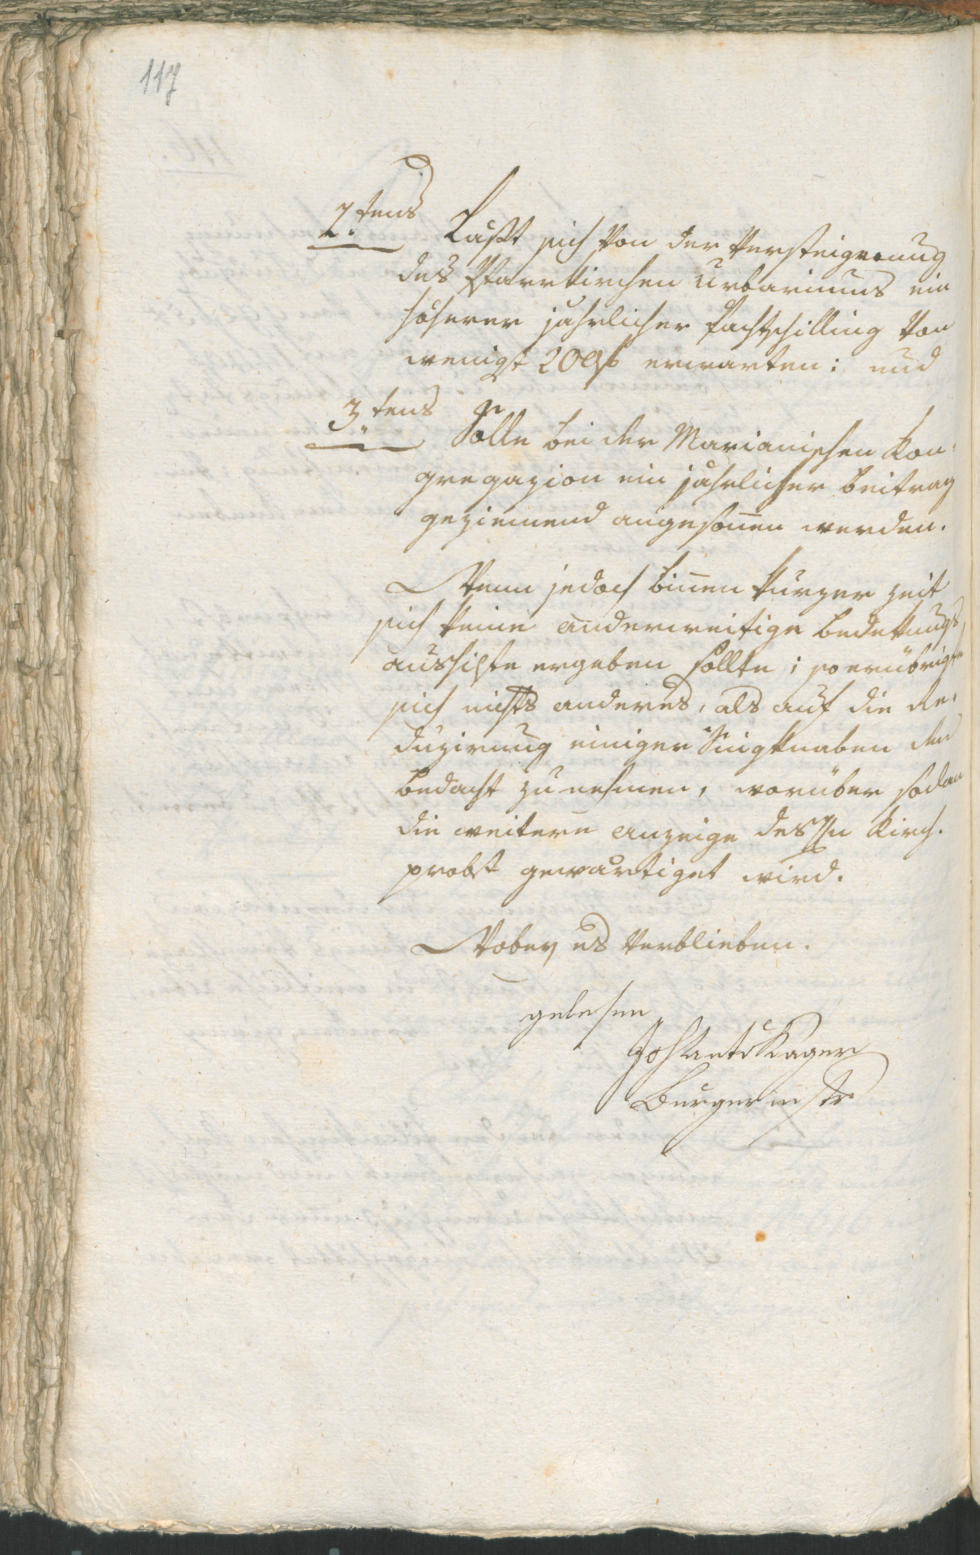 117
2.tens Laßt sich von der Versteigerung
des Pfarrkirchen Urbariums ein
höherer jährlicher Pachtschilling von
wenigst 20 erwarten: und
3tens Solle bei der Marianischen Kon-
gregazion ein jährlicher Beitrag
geziemend angesoñen werden.
Wenn jedoch biñen kurzer Zeit
sich keine anderweitige Bedekungs
aussichte ergeben sollte; so erübrige
sich nichts anderes, als auf die Re-
duzirung einiger Singknaben den
Bedacht zu nehmen, worüber sodan
die weitere Anzeige des Hn Kirch-
probst gewärtiget wird.
Wobey es verblieben.
gelesen
Joh Kager
Burgermstr